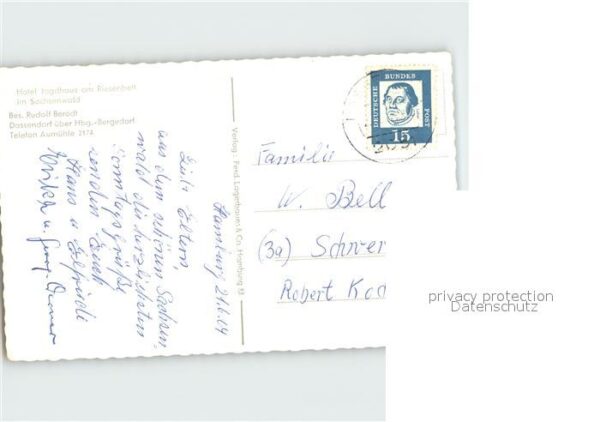 Hotel Jagdhaus am Riesenbett
im Sachsenwald
Bes. Rudolf Berodt
Dassendorf über Hbg.-Bergedorf
Telefon Aumühle 2174
Hamburg 21.6.64
Liebe Eltern,
aus dem schönen Sachsen-
wald die herzlichsten
Sonntagsgrüße
senden Euch
Hans u. Elfriede
Erika u. Georg
Verlag: Ferd. Lagerbauer & Co. Hamburg
DEUTSCHE BUNDES POST
15
Familie
W. Bell
(3a) Schwer
Robert Koc
privacy protection
Datenschutz